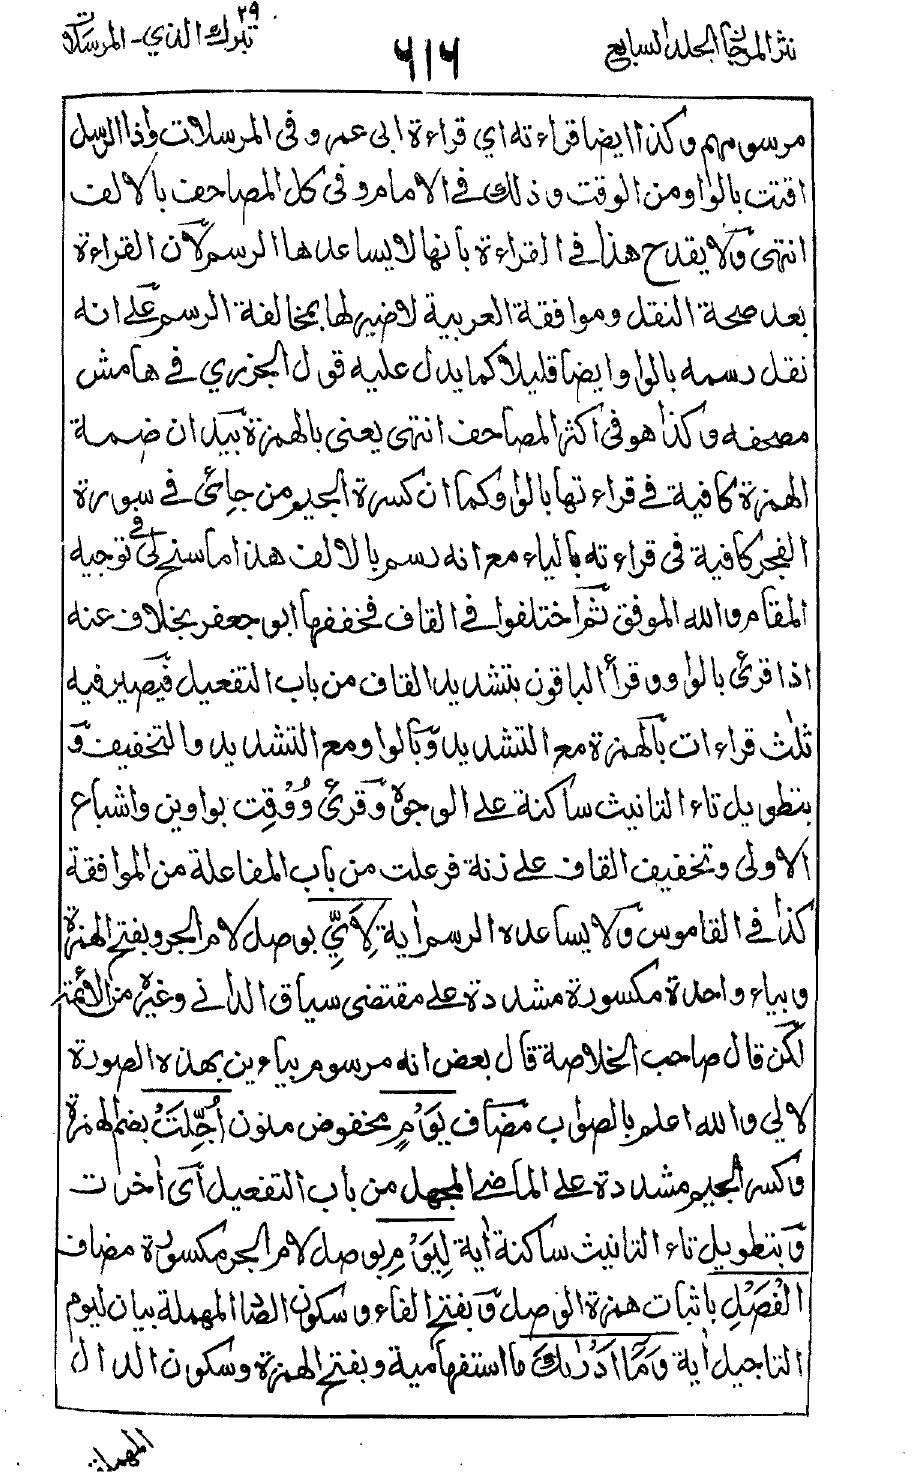 نثر المرجان الجلد السابع
٦١٦
تبرك الذي ٢٩ - المرسلات
مرسومهم وكذا ايضا قراءته اي قراءة ابى عمرو فى المرسلات واذا الرسل
اقتت بالواو من الوقت وذلك فى الامام وفى كل المصاحف بالالف
انتهى ولا يقدح هذا فى القراءة بانها لا يساعدها الرسم لان القراءة
بعد صحة النقل وموافقة العربية لا ضير لها بمخالفة الرسم على انه
نقل رسمه بالواو ايضا قليلا كما يدل عليه قول الجزري فى هامش
مصحفه وكذا هو فى اكثر المصاحف انتهى يعنى بالهمزة بيد ان ضمة
الهمزة كافية فى قراءتها بالواو كما ان كسرة الجيم من جائ فى سورة
الفجر كافية فى قراءته بالياء مع انه رسم بالالف هذا ما سنح لى فى توجيه
المقام والله الموفق ثم اختلفوا فى القاف فخففها ابو جعفر بخلاف عنه
اذا قرئ بالواو وقرأ الباقون بتشديد القاف من باب التفعيل فيصير فيه
ثلث قراءات بالهمزة مع التشديد وبالواو مع التشديد والتخفيف و
بتطويل تاء التانيث ساكنة على الوجوه وقرئ وُوْقِت بواوين واشباع
الاولى وتخفيف القاف على زنة فوعلت من باب المفاعلة من الموافقة
كذا فى القاموس ولا يساعده الرسم اية لِاَيِّ بوصل لام الجر وبفتح الهمزة
وبياء واحدة مكسورة مشددة على مقتضى سياق الدانى وغيره من الائمة
لكن قال صاحب الخلاصة قال بعض انه مرسوم بياءين بهذه الصورة
لايي والله اعلم بالصواب مضاف يَوْمٍ مخفوض منون اُجِّلَتْ بضم الهمزة
وكسر الجيم مشددة على الماضى المجهل من باب التفعيل اى اخرت
وبتطويل تاء التانيث ساكنة اية لِيَوْمِ بوصل لام الجر مكسورة مضاف
الْفَصْلِ باثبات همزة الوصل وبفتح الفاء وسكون الصاد المهملة بيان ليوم
التاجيل اية وَمَا اَدْرٰىكَ ما استفهامية وبفتح الهمزة وسكون الدال
المهملة